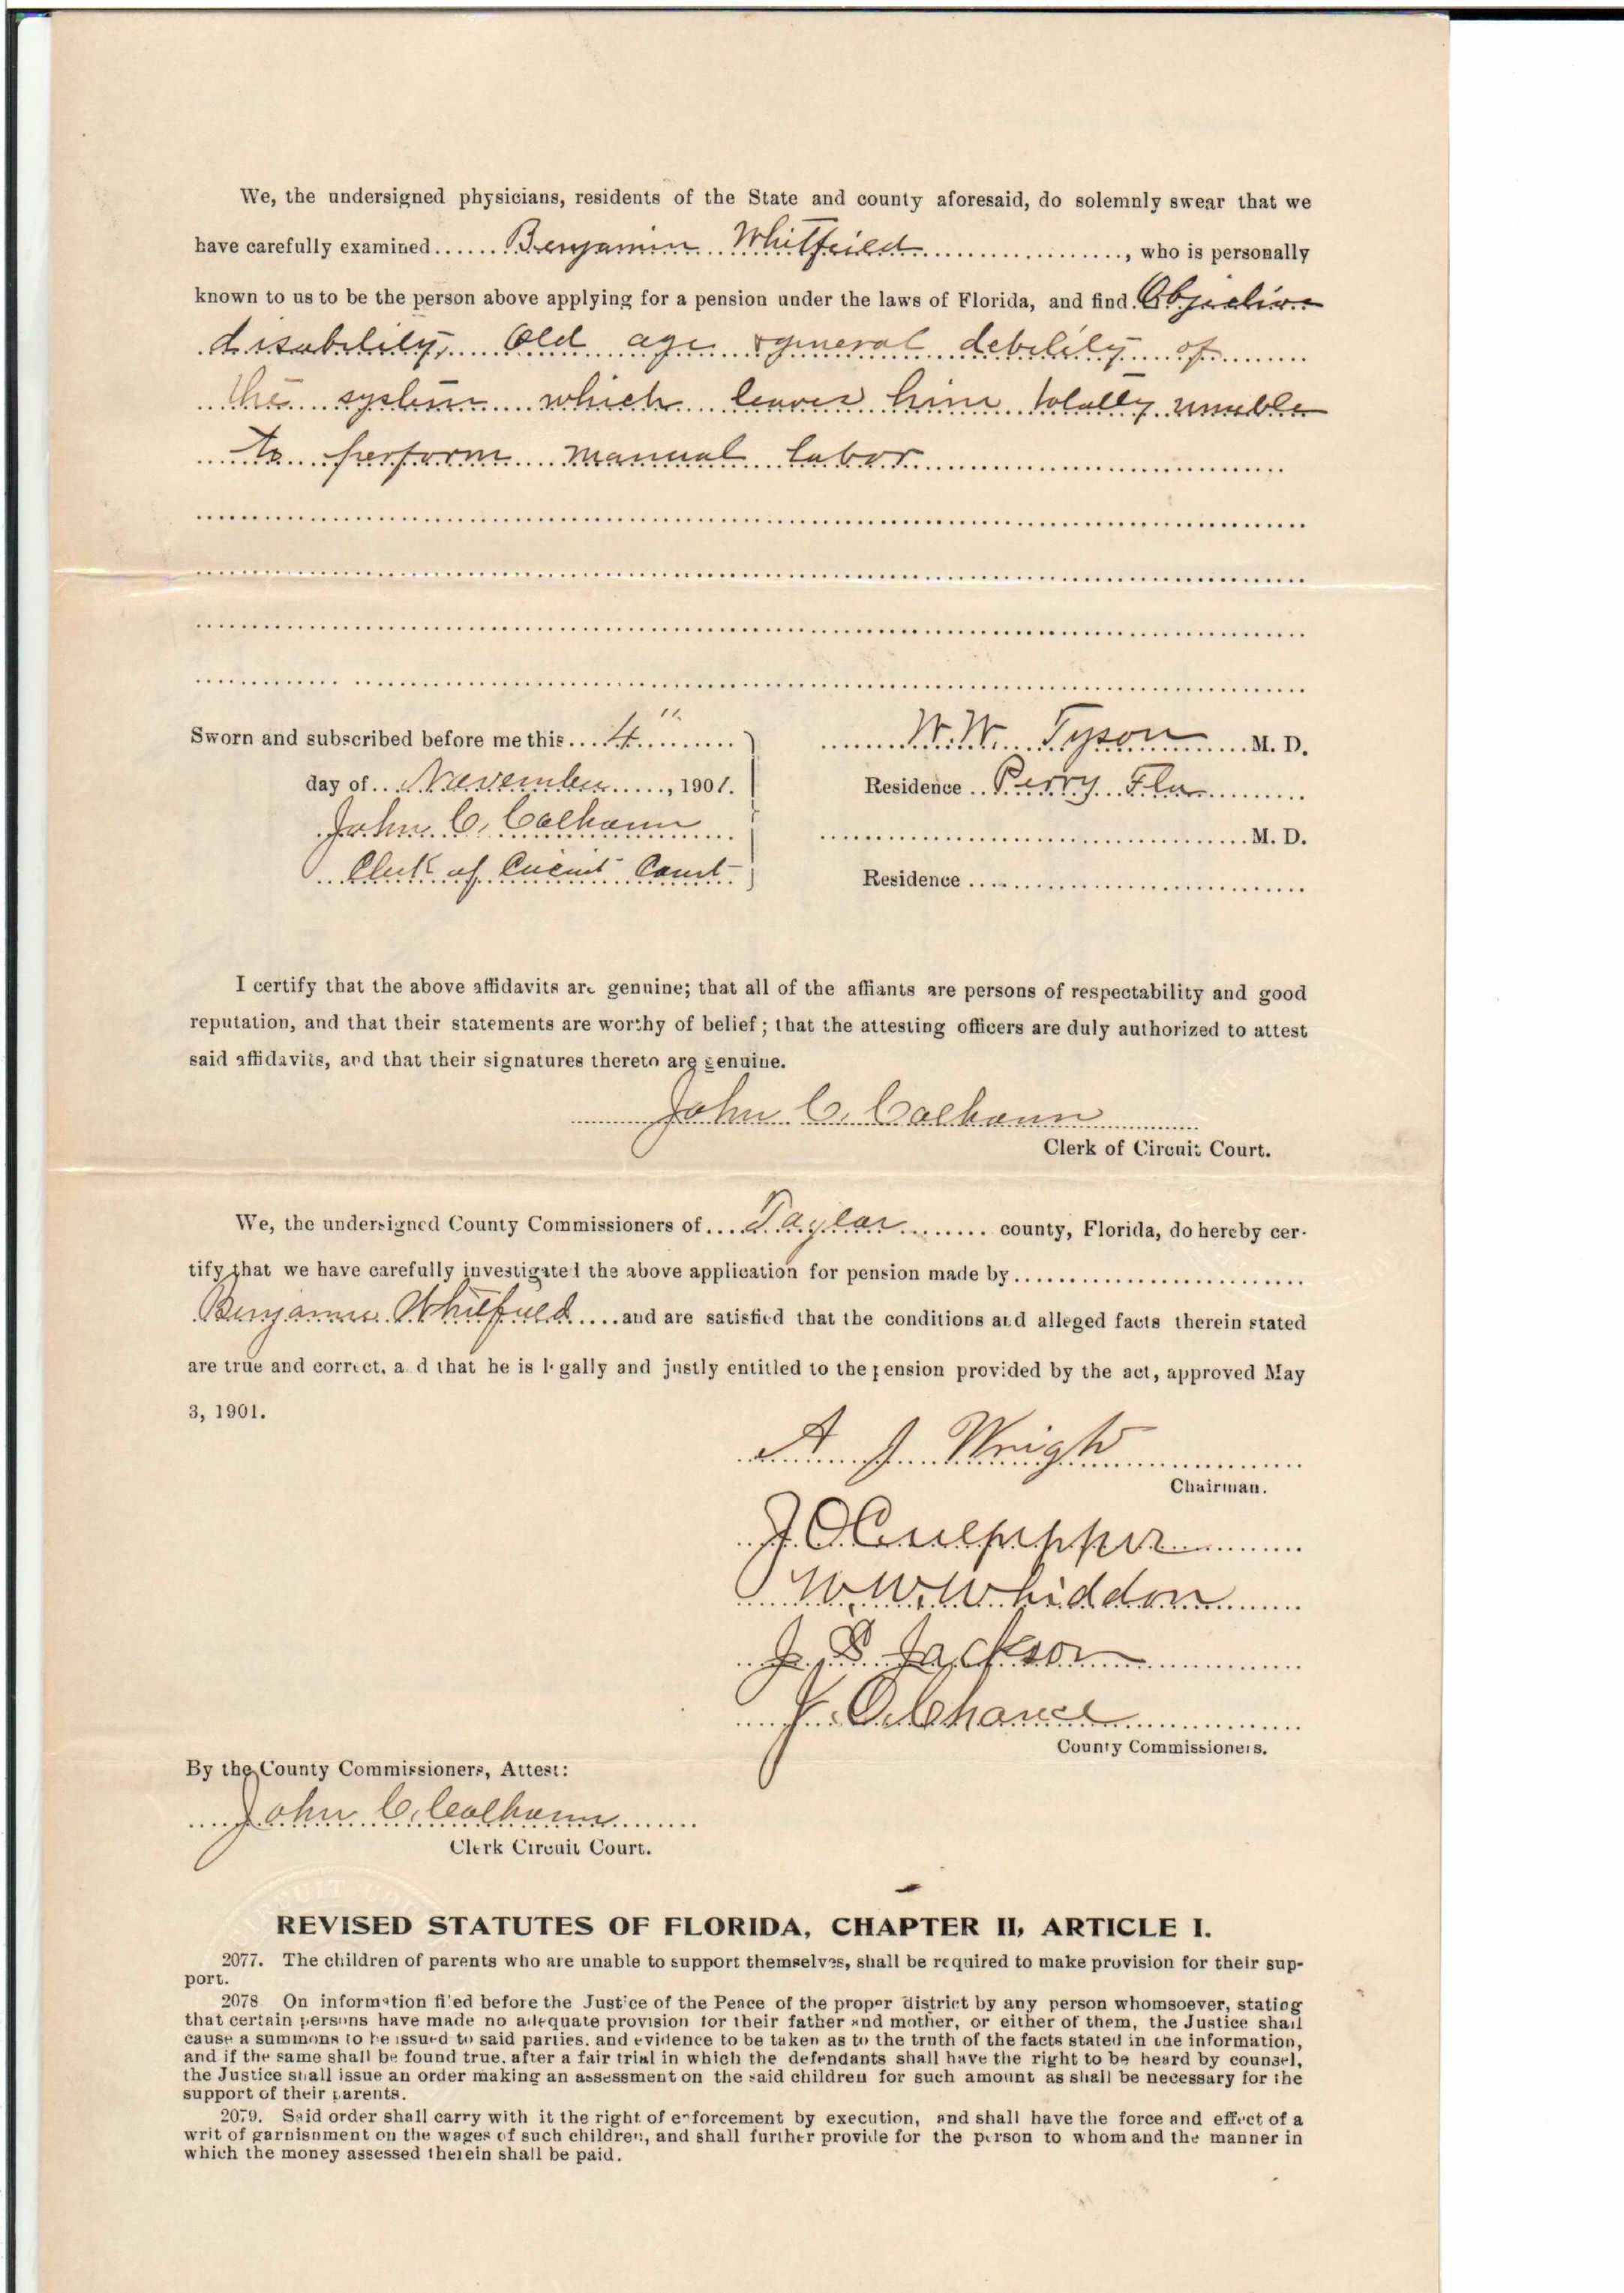 We, the undersigned physicians, residents of the State and county aforesaid, do solemnly swear that we
have carefully examined...... Benjamin Whitfield ...................., who is personally
known to us to be the person above applying for a pension under the laws of Florida, and find Objective
disability, Old age & general debility of
the system which leaves him totally unable
to perform manual labor
Sworn and subscribed before me this.... 4" ........
W. W. Tyson ........ M. D.
day of.. November ....., 1901.
Residence .. Perry Fla ..........
John C. Calhoun
.................................... M. D.
Clerk of Circuit Court
Residence ..............................
I certify that the above affidavits are genuine; that all of the affiants are persons of respectability and good
reputation, and that their statements are worthy of belief; that the attesting officers are duly authorized to attest
said affidavits, and that their signatures thereto are genuine.
John C. Calhoun
Clerk of Circuit Court.
We, the undersigned County Commissioners of.... Taylor ........ county, Florida, do hereby cer-
tify that we have carefully investigated the above application for pension made by..........................
Benjamin Whitfield .....and are satisfied that the conditions and alleged facts therein stated
are true and correct, and that he is legally and justly entitled to the pension provided by the act, approved May
3, 1901.
A J Wright
Chairman.
J O Culpepper
W. W. Whiddon
J. S. Jackson
J. O. Chance
County Commissioners.
By the County Commissioners, Attest:
John C. Calhoun
Clerk Circuit Court.
CIRCUIT CO
REVISED STATUTES OF FLORIDA, CHAPTER II, ARTICLE I.
2077. The children of parents who are unable to support themselves, shall be required to make provision for their sup-
port.
2078 On information filed before the Justice of the Peace of the proper district by any person whomsoever, stating
that certain persons have made no adequate provision for their father and mother, or either of them, the Justice shall
cause a summons to be issued to said parties, and evidence to be taken as to the truth of the facts stated in the information,
and if the same shall be found true, after a fair trial in which the defendants shall have the right to be heard by counsel,
the Justice shall issue an order making an assessment on the said children for such amount as shall be necessary for the
support of their parents.
2079. Said order shall carry with it the right of enforcement by execution, and shall have the force and effect of a
writ of garnishment on the wages of such children, and shall further provide for the person to whom and the manner in
which the money assessed therein shall be paid.